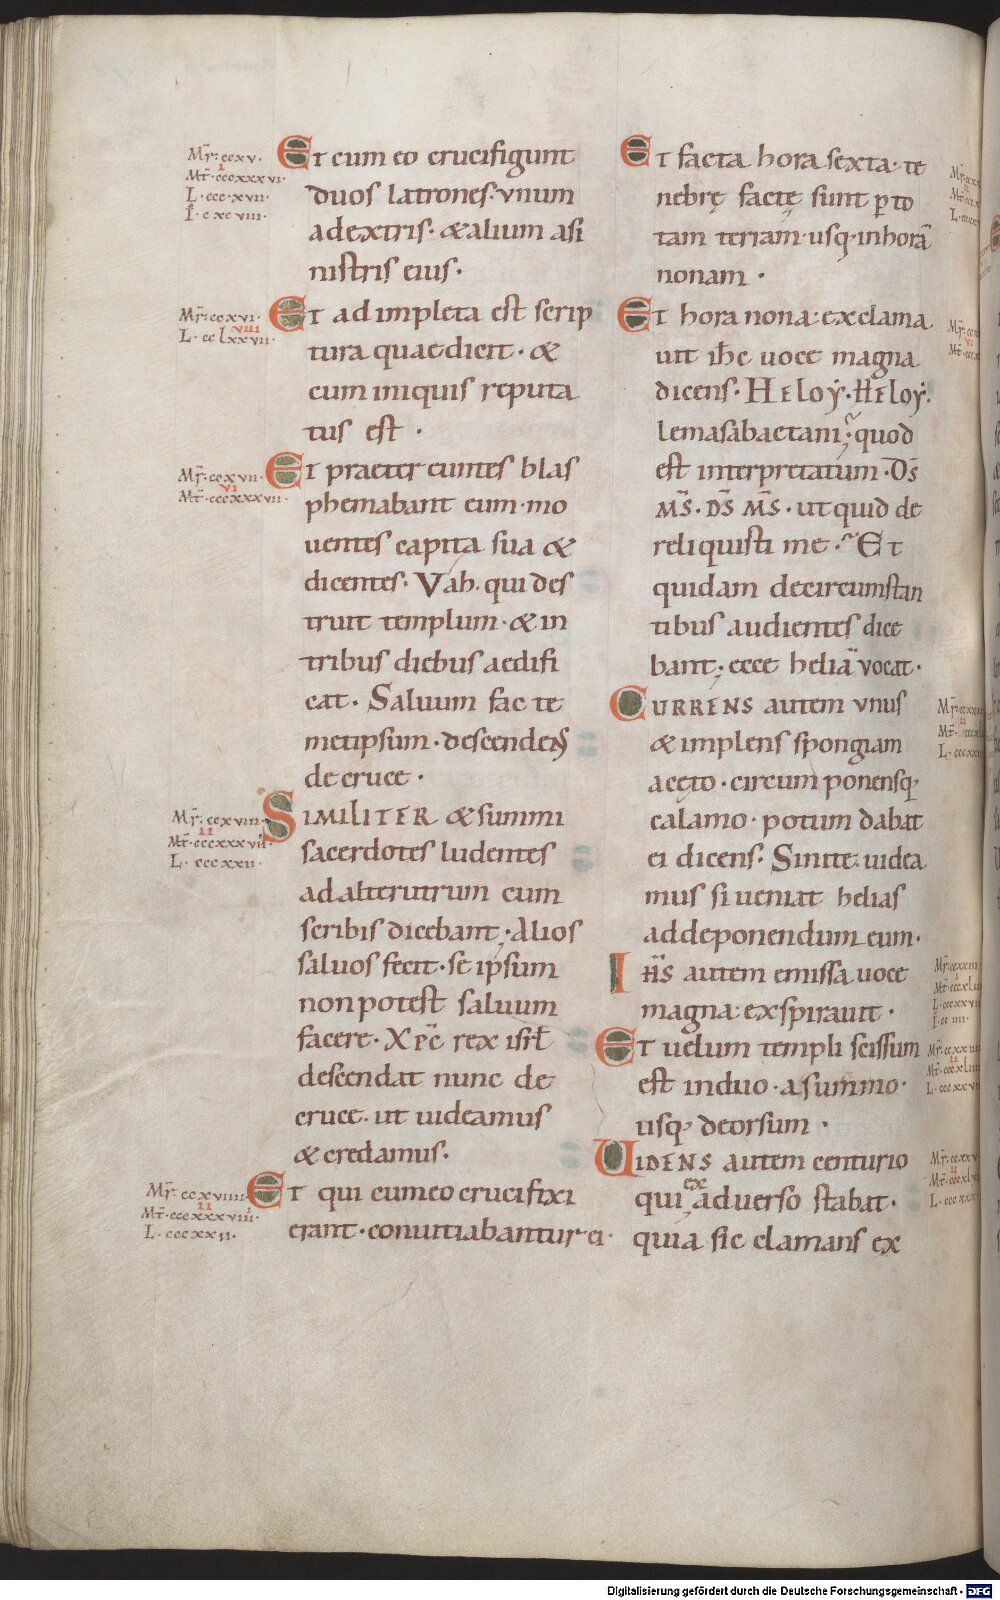 Mr̄: ccxv.
I
Mt̄. cccxxxvi.
L. cccxvii.
I. cxcviii.
Et cum eo crucifigunt
duos latrones. vnum
adextris. & alium asi
nistris eius.
Mr̄: ccxvi.
VIII
L. cclxxvii.
Et adimpleta est scrip
tura quae dicit. &
cum iniquis reputa
tus est.
Mr̄: ccxvii.
VI
Mt̄. cccxxxvii.
Et praetereuntes blas
phemabant eum. mo
uentes capita sua &
dicentes. Vah. qui des
truit templum. & in
tribus diebus aedifi
cat. Saluum fac te
metipsum. descendens
de cruce.
Mr̄: ccxviii.
II
Mt̄. cccxxxvii.
L. cccxxii.
SIMILITER & summi
sacerdotes ludentes
ad alterutrum cum
scribis dicebant; Alios
saluos fecit. se ipsum
non potest saluum
facere. Xp̄c rex isrł
descendat nunc de
cruce. ut uideamus
& credamus.
Mr̄. ccxviiii.
II
Mt̄. cccxxxviii.
L. cccxxii.
Et qui cum eo crucifixi
erant. conuitiabantur ei.
Et facta hora sexta. te
nebrę factę sunt ꝑ to
tam terram. usq; in horā
nonam.
Et hora nona: exclama
uit ih̄c uoce magna
dicens. HELOẏ. HELOẏ.
lemasabactani; quod
est interpretatum. D̄S
M̄S. D̄S M̄S. ut quid de
reliquisti me. Et
quidam decircumstan
tibus audientes dice
bant; ecce heliā vocat.
CURRENS autem vnus
& implens spongiam
acęto. circumponensq;
calamo. potum dabat
ei dicens. Sinite: uidea
mus si ueniat helias
addeponendum eum.
IH̄S autem emissa uoce
magna: exspirauit.
Et uelum templi scissum
est induo. a summo.
usq; deorsum.
UIDENS autem centurio
ex
qui aduerso stabat.
quia sic clamans ex
Digitalisierung gefördert durch die Deutsche Forschungsgemeinschaft - DFG